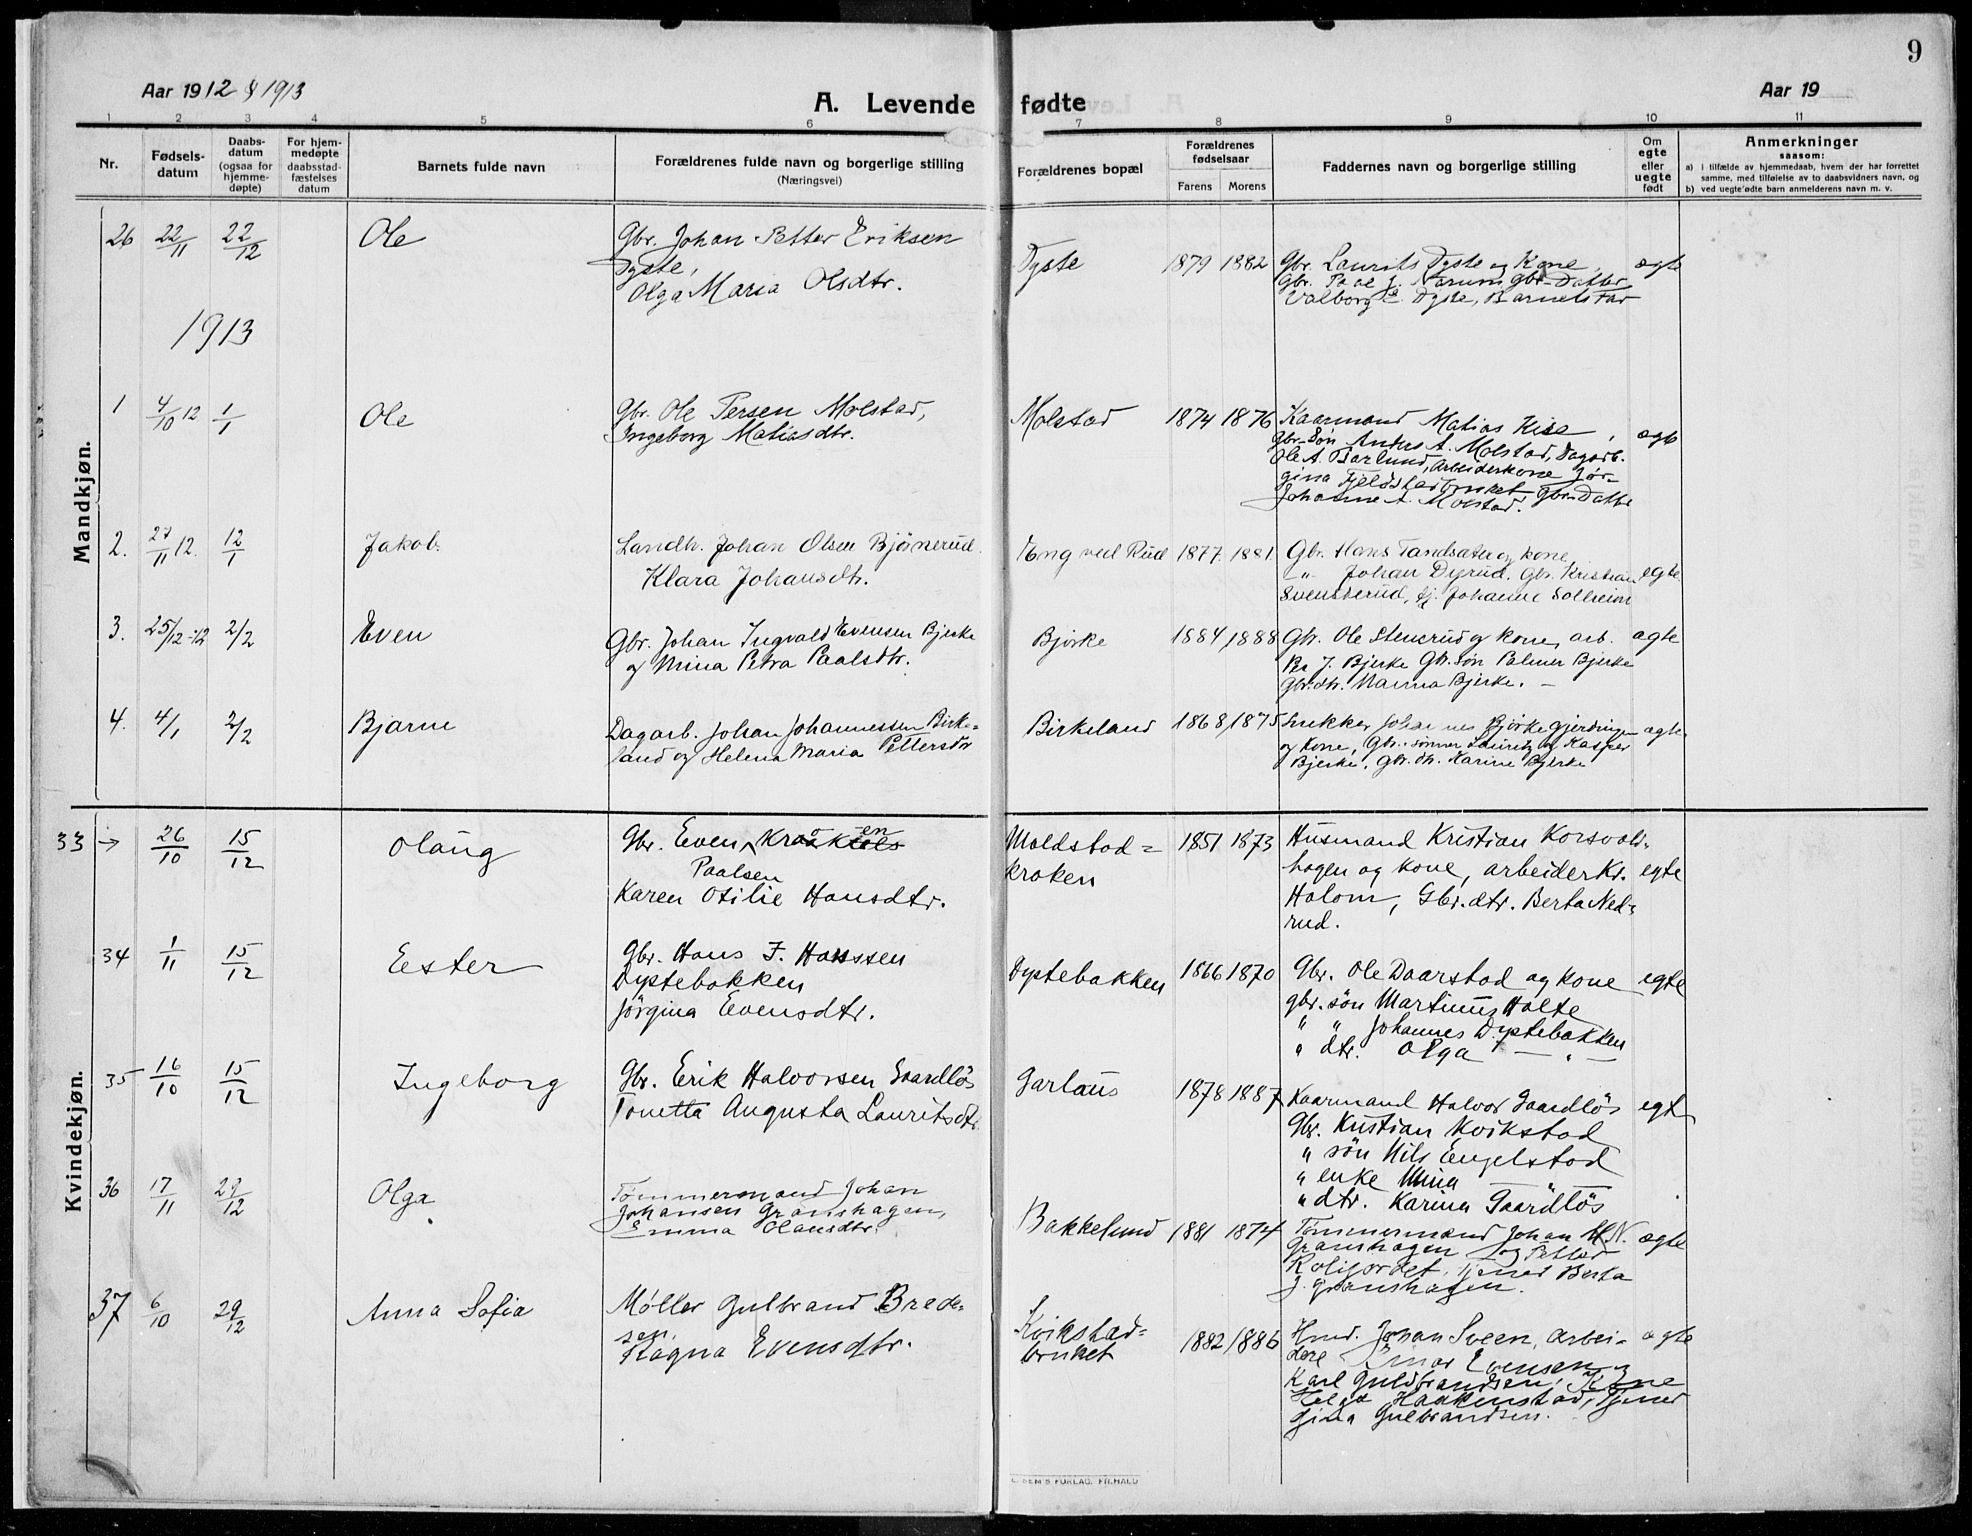 9
Aar 1912 & 1913
A. Levende fødte
Aar 19
1 2 3 4 5 6 7 8 9 10 11
Nr.
Fødsels-
datum
Daabs-
datum
(ogsaa for
hjemme-
døpte)
For hjem-
medøpte
daabsstad-
fæstelses
datum
Barnets fulde navn
Forældrenes fulde navn og borgerlige stilling
(Næringsvei)
Forældrenes bopæl
Forældrenes
fødselsaar
Farens Morens
Faddernes navn og borgerlige stilling
Om
egte
eller
uegte
født
Anmerkninger
saasom:
a) i tilfælde av hjemmedaab, hvem der har forrettet
samme, med tilføielse av to daabsvidners navn, og
b) ved uegte fødte barn anmelderens navn m. v.
Mandkjøn.
26 22/11 22/12 Ole
Gbr. Johan Petter Eriksen
Dyste,
Olga Maria Olsdtr.
Dyste 1879 1882
Gbr. Laurits Dyste og Kone,
Gbr. Paal J. Narum gbr-Datter
Valborg E. Dyste, Barnets Far
ægte
1913
1 4/10 12 1/1 Ole
Gbr. Ole Persen Molstad,
Ingeborg Matiasdtr.
Molstad 1874 1876
Kaarmand Matias Kise,
Gbr-Søn Anders A. Molstad, Dagarb.
Ole A. Bjarlund, Arbeiderkone Jør-
gina Fjeldstadbruket gbr-Datter
Johanne A. Molstad.
ægte
2. 27/11 12. 12/1 Jakob.
Landh. Johan Olsen Bjørnerud.
Klara Johansdtr.
Eng ved Rud 1877. 1881.
Gbr. Hans Tandsæter og kone,
" Johan Dyrud. Gbr. Kristian
Svensberud, tj. Johanne Solheim
egte.
3. 25/12-12 2/2 Even
Gbr. Johan Ingvald Evensen Bjerke
og Mina Petra Paalsdtr.
Bjørke 1884 1888
Gbr. Ole Stenerud og kone, arb.
Per J. Bjerke Gbr. søn Palmer Bjerke
Gbr. dtr. Marina Bjerke. —
ægte
4. 4/1 2/2 Bjarne
Dagarb. Johan Johannessen Birke=
land og Helena Maria Pettersdtr
Birkeland 1868, 1875
Snekker Johannes Bjørke Gjerdingen
og kone, Gbr. sønner Lauritz og Kasper
Bjerke. Gbr. dtr. Karine Bjerke
ægte.
Kvindekjøn.
33 → 26/10 15/12 Olaug
Gbr. Even Kraaken
Paalsen
Karen Otilie Hansdtr.
Moldstad=
kroken
1851 1873
Husmand Kristian Korsvold-
hagen og kone, arbeider Kr.
Holom, Gbr. dtr. Berta Ned=
rud.
egte
34 1/11 15/12 Ester
Gbr. Hans F. Hanssen
Dystebakken
Jørgina Evensdtr.
Dystebakken 1866 1870
Gbr. Ole Daarstad og kone
gbr. søn Martinus Holte
" " Johannes Dystebakken
" dtr. Olga — " —
egte
35 16/10 15/12 Ingeborg
Gbr. Erik Halvorsen Gaardløs
Tonetta Augusta Lauritsdtr.
Garlaus 1878 1887
Kaarmand Halvor Gaardløs
Gbr. Kristian Kvikstad
" søn Nils Engelstad
" enke Mina —
" dtr. Karina Gaardløs
egte
36 17/11 29/12 Olga
Tømmermand Johan
Johansen Granshagen,
Emma Olausdtr.
Bakkelund 1881 1874
Tømmermand Johan H. N.
Granshagen og Petter
Roligordet, Tjener Berta
J. Granshagen.
ægte
37 6/10 29/12 Anna Sofia
Møller Gulbrand Brede=
sen.
Ragna Evensdtr.
Kvikstad=
bruket
1882 1886
Hmd. Johan Sveen, Arbei=
dere Einar Evensen og
Karl Guldbrandsen, Kone
Helga Haakenstad, Tjener
Gina Gulbrandsen.
ægte
SEM'S FORLAG. FR. HALD